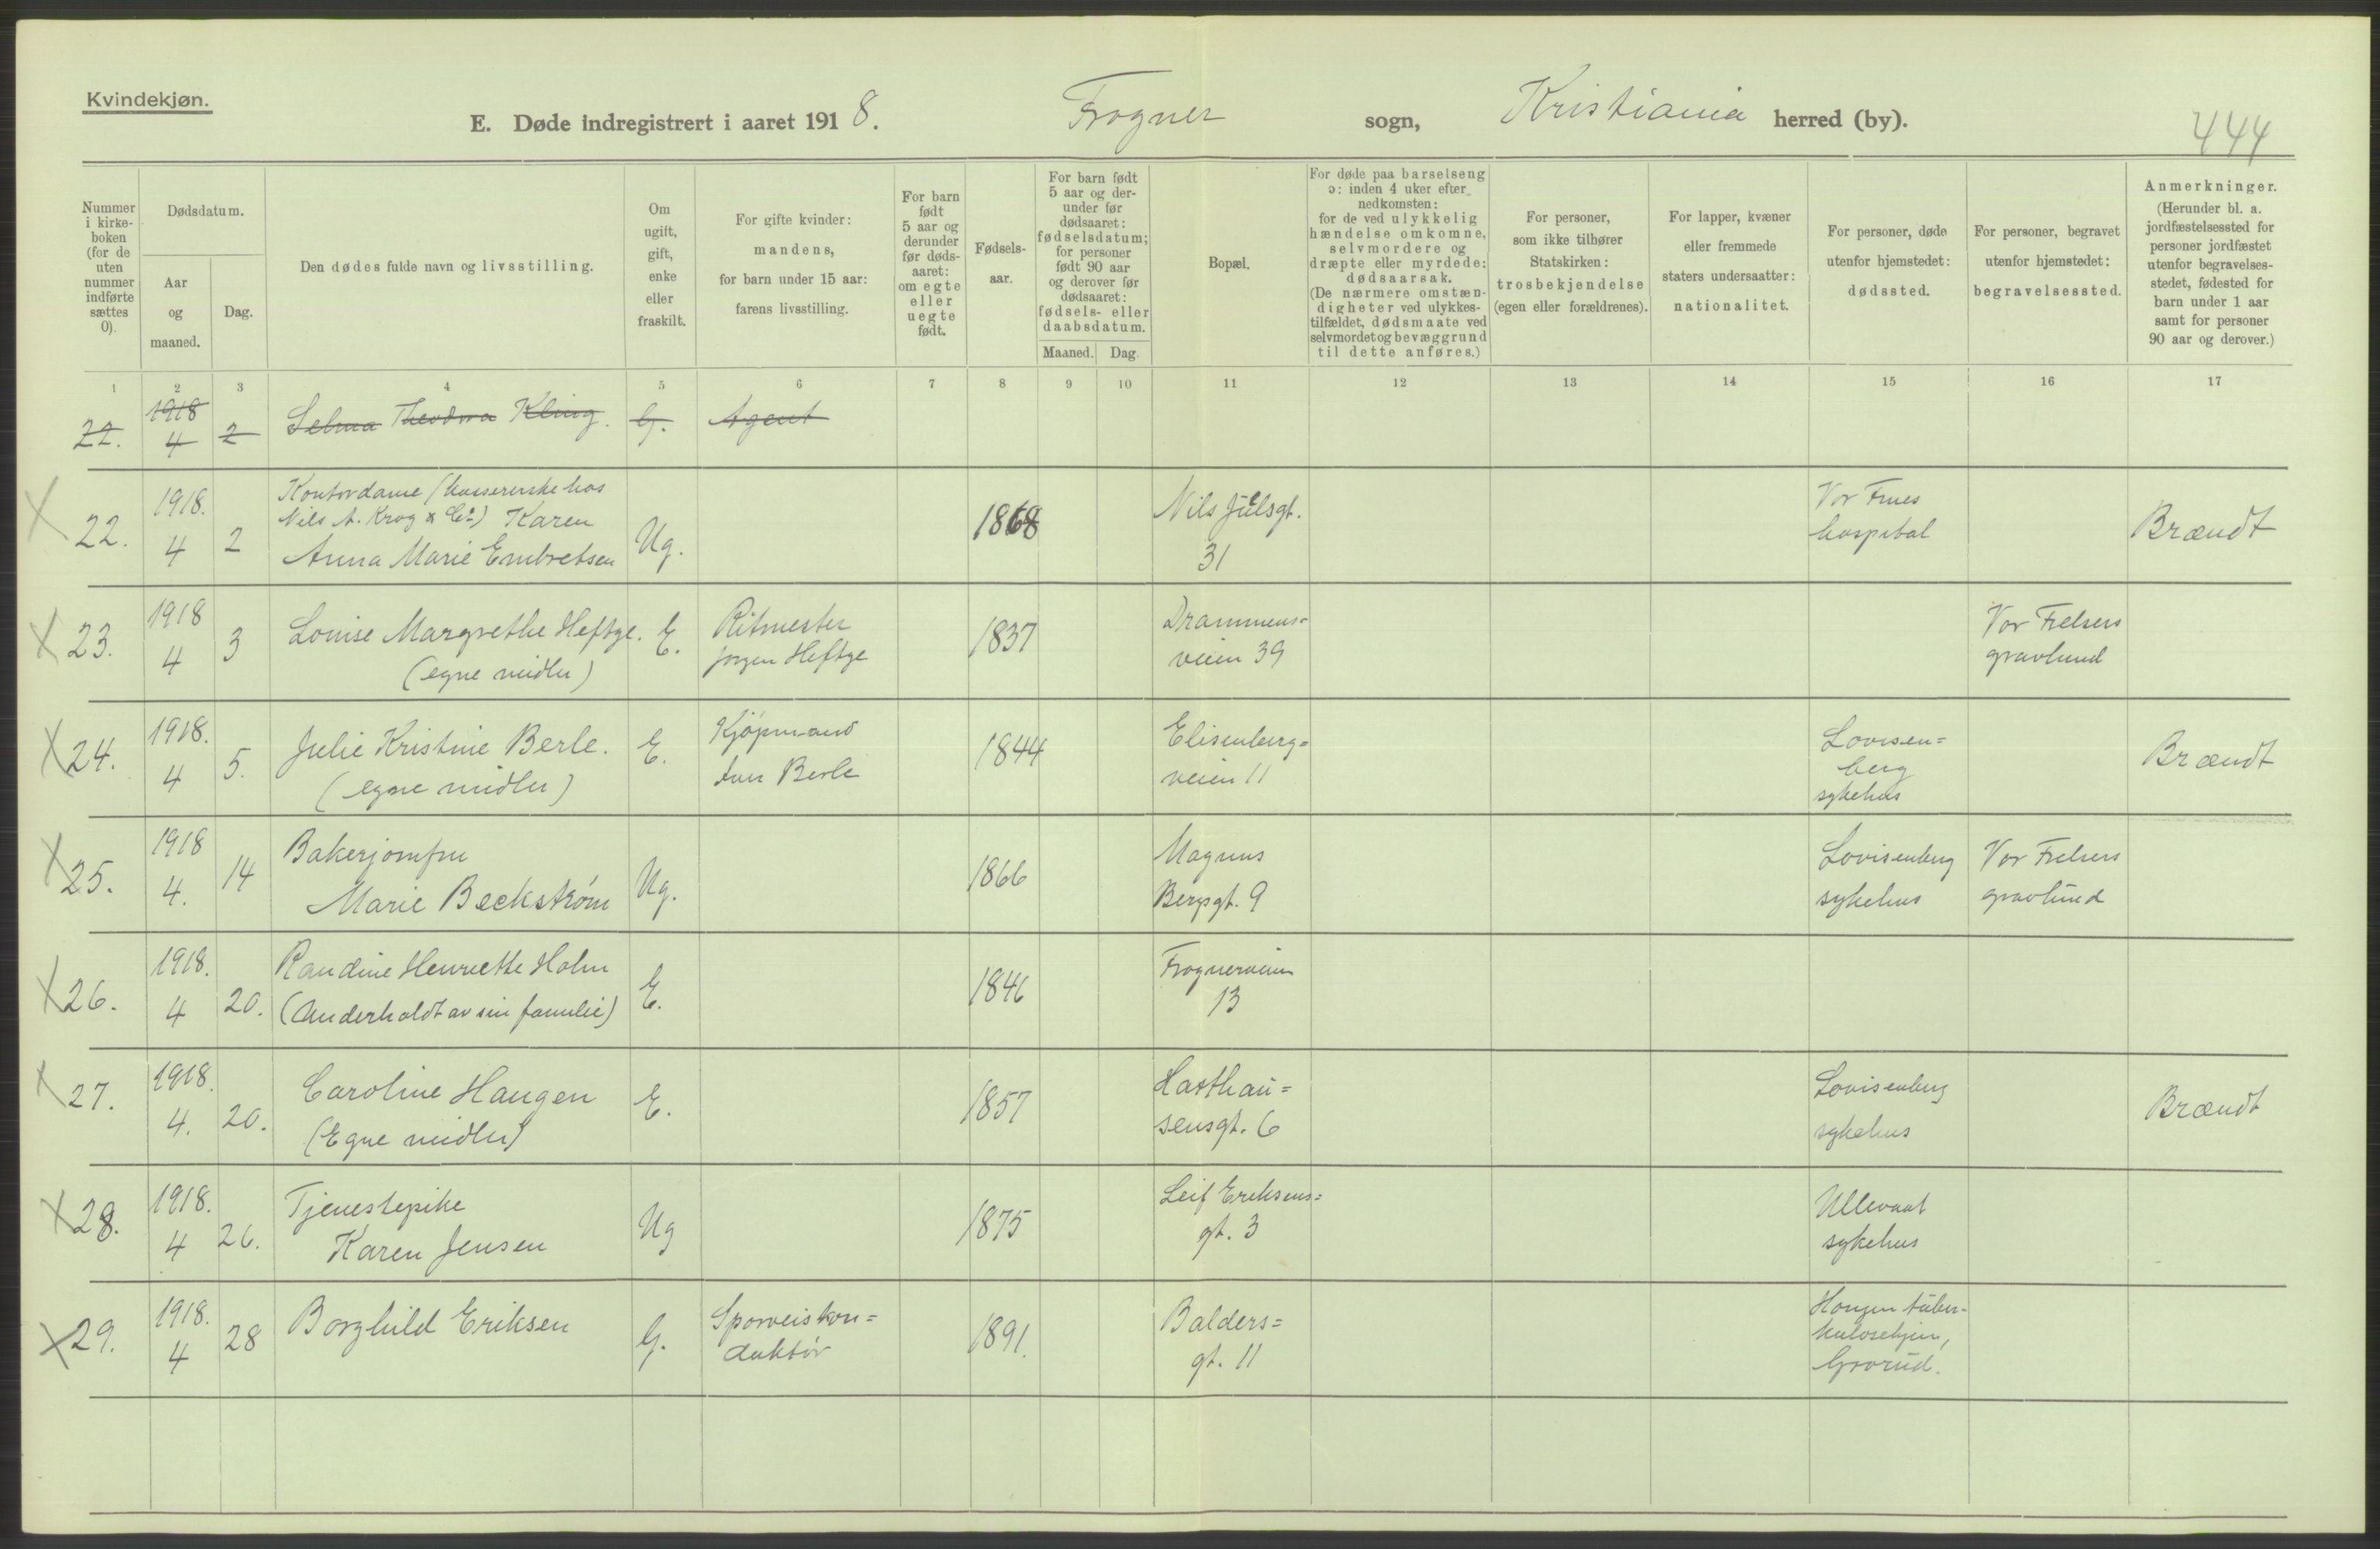 Kvindekjøn.
E. Døde indregistrert i aaret 1918. Frogner sogn, Kristiania herred (by).
444
Nummer i kirke-boken (for de uten nummer indførte sættes 0).
Dødsdatum.
Aar og maaned.
Dag.
Den dødes fulde navn og livsstilling.
Om ugift, gift, enke eller fraskilt.
For gifte kvinder: mandens, for barn under 15 aar: farens livsstilling.
For barn født 5 aar og derunder før døds-aaret: om egte eller uegte født.
Fødsels-aar.
For barn født 5 aar og der-under før dødsaaret: fødselsdatum; for personer født 90 aar og derover før dødsaaret: fødsels- eller daabsdatum.
Maaned. Dag.
Bopæl.
For døde paa barselseng ɔ: inden 4 uker efter nedkomsten: for de ved ulykkelig hændelse omkomne, selvmordere og dræpte eller myrdede: dødsaarsak. (De nærmere omstæn-digheter ved ulykkes-tilfældet, dødsmaate ved selvmordet og bevæggrund til dette anføres.)
For personer, som ikke tilhører Statskirken: trosbekjendelse (egen eller forældrenes).
For lapper, kvæner eller fremmede staters undersaatter: nationalitet.
For personer, døde utenfor hjemstedet: dødssted.
For personer, begravet utenfor hjemstedet: begravelsessted.
Anmerkninger. (Herunder bl. a. jordfæstelsessted for personer jordfæstet utenfor begravelses-stedet, fødested for barn under 1 aar samt for personer 90 aar og derover.)
1 2 3 4 5 6 7 8 9 10 11 12 13 14 15 16 17
22. 1918 4 2 Selma Theodora Kling. G. Agent
22. 1918. 4 2 Kontordame (kassererske hos
Nils A. Krog & Co) Karen
Anna Marie Embretsen Ug. 1868 Nils Juelsgt. 31 Vor Frues hospital Brændt
23. 1918 4 3 Louise Margrethe Heftye. E. Ritmester Jørgen Heftye 1837 Drammens=veien 39 Vor Frelsers gravlund
(egne midler)
24. 1918. 4 5. Julie Kristine Berle. E. Kjøpmand Berle 1844 Elisenberg=veien 11 Lovisen=berg sykehus Brændt
(egne midler)
25. 1918 4. 14 Bakerjomfru
Marie Beckstrøm Ug. 1866 Magnus Bergsgt. 9 Lovisenberg sykehus Vor Frelsers gravlund
26. 1918. 4 20. Randine Henriette Holm E. 1846 Frognerveien 13
(Underholdt av sin familie)
27. 1918. 4. 20. Caroline Haugen E. 1857 Haxthau=sensgt. 6 Lovisenberg sykehus Brændt
(Egne midler)
28. 1918. 4 26. Tjenestepike
Karen Jensen Ug 1875 Leif Eriksens=gt. 3 Ullevaal sykehus
29. 1918. 4 28 Borghild Eriksen G. Sporveiskon=duktør 1891. Balders=gt. 11 tuber-kulosehjem, Grorud.